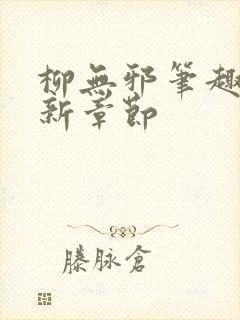 柳無邪筆趣
新章節
滕脉倉